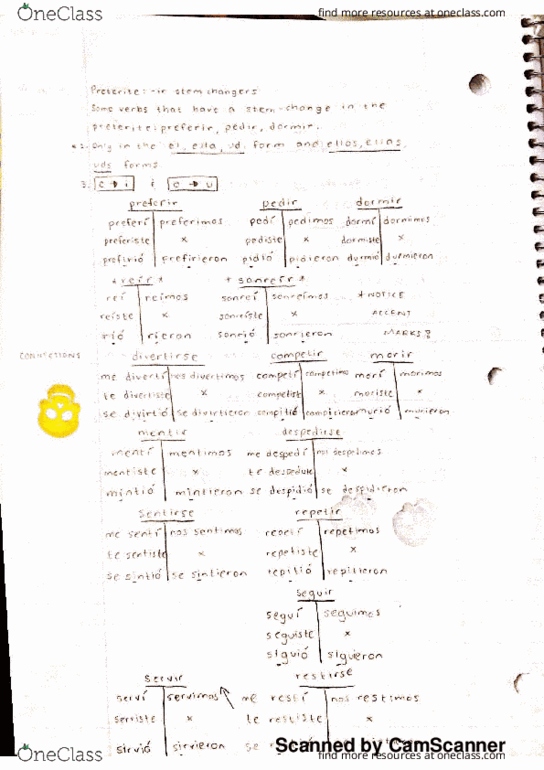 OneClass
find more resources at oneclass.com
Preterite: -ir stem changers
Some verbs that have a stem-change in the
preterite: preferir, pedir, dormir.
Only in the él, ella, ud. form and ellos, ellas,
uds forms.
3. e → i i o → u
preferir pedir dormir
preferí preferimos pedí pedimos dormí dormimos
preferiste x pediste x dormiste x
prefirió prefirieron pidió pidieron durmió durmieron
* reír * * sonreír *
reí reímos sonreí sonreímos * NOTICE
reíste x sonreíste x ACCENT
rió rieron sonrió sonrieron MARKS?
CONNECTIONS
divertirse competir morir
me divertí nos divertimos competí competimos morí morimos
te divertiste x competiste x moriste x
se divirtió se divirtieron compitió compitieron murió murieron
mentir despedirse
mentí mentimos me despedí nos despedimos
mentiste x te despediste x
mintió mintieron se despidió se despidieron
Sentirse repetir
me sentí nos sentimos repetí repetimos
te sentiste x repetiste x
se sintió se sintieron repitió repitieron
Seguir
seguí seguimos
seguiste x
siguió siguieron
Servir restirse
serví servimos me restí nos restimos
serviste x te restiste x
sirvió sirvieron se
Scanned by CamScanner
OneClass
find more resources at oneclass.com